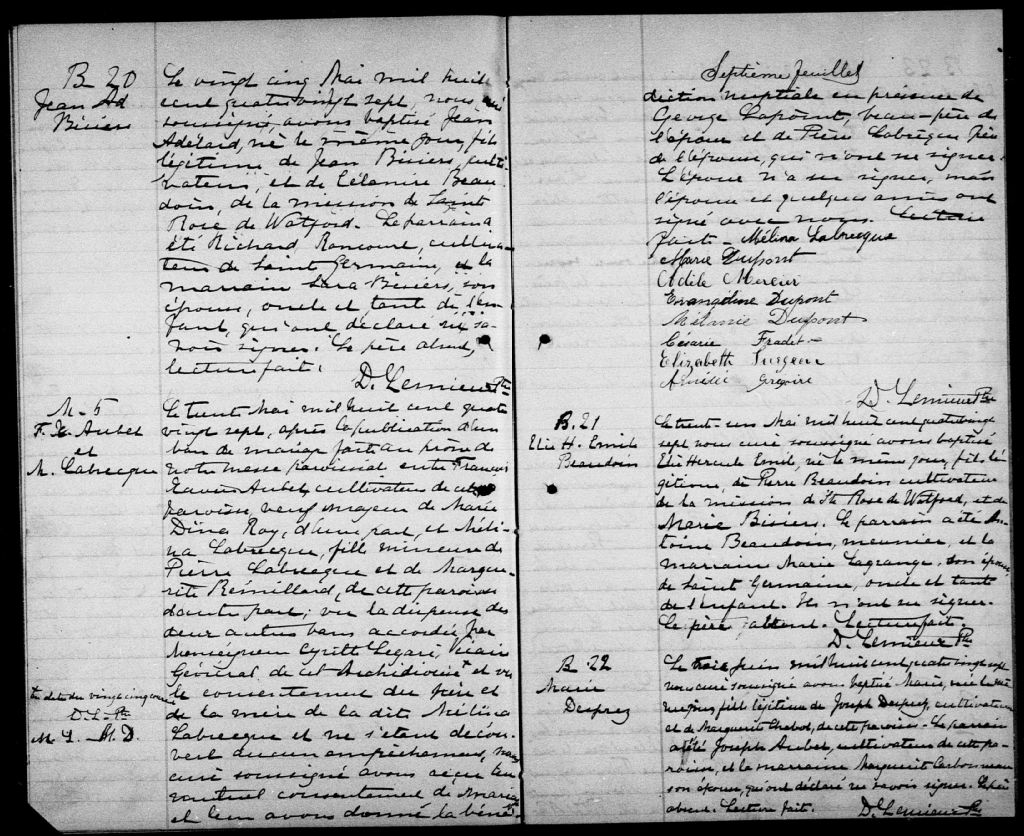 B 20
Jean Ad
Biviers
Le vingt cinq Mai mil huit
cent quatre vingt sept, nous, curé
soussigné, avons baptisé Jean
Adélard, né le même jour, fils
légitime de Jean Biviers, culti-
vateur, et de Célanire Beau-
doin, de la mission de Saint
Rose de Watford. Le parrain a
été Richard Rancourt, cultiva-
teur de Saint Germaine, et la
marraine Sara Biviers, son
épouse, oncle et tante de l'en-
fant, qui ont déclaré ne sa-
voir signer. Le père absent,
lecture fait.
D. Lemieux Ptre
M. 5
F. X. Aubet
et
M. Labrecque
Le trente Mai mil huit cent quatre
vingt sept, après la publication d'un
ban de mariage fait au prône de
notre messe paroissial entre François
Xavier Aubet, cultivateur de cette
paroisse, veuf majeur de Marie
Dina Roy, d'une part, et Méli-
na Labrecque, fille mineure de
Pierre Labrecque et de Margue-
rite Rémillard, de cette paroisse
d'autre part; vu la dispense des
deux autres bans accordée par
Monseigneur Cyrille Légaré, Vicaire
Général, de cet Archidiocèse + et vu
le consentement du père et
de la mère de la dite Mélina
Labrecque et ne s'étant décou-
vert aucun empêchement, nous
curé soussigné avons reçu leur
mutuel consentement de mariage
et leur avons donné la béné-
+ en date du vingt cinq courant
D. L. Ptre
M. L. M. D.
Septième feuillet
diction nuptiale en présence de
George Lapointe, beau-père de
l'époux et de Pierre Labrecque père
de l'épouse, qui n'ont su signer.
L'époux n'a su signer, mais
l'épouse et quelques amis ont
signé avec nous. Lecture
fait. Mélina Labrecque
Marie Dupont
Adèle Mercier
Evangeline Dupont
Mélanie Dupont
Césarie Fradet
Elizabeth Turgeon
Grégoire
D. Lemieux Ptre
B. 21
Elie H. Emile
Beaudoin
Le trente-un Mai mil huit cent quatre vingt
sept nous curé soussigné avons baptisé
Elie Hercule Emile, né le même jour, fils lé-
gitime, de Pierre Beaudoin cultivateur
de la mission de Ste Rose de Watford, et de
Marie Biviers. Le parrain a été An-
toine Beaudoin, meunier, et la
marraine Marie Lagrange, son épouse,
de Saint Germaine, oncle et tante
de l'enfant. Ils n'ont su signer.
Le père absent. Lecture fait.
D. Lemieux Ptre
B 22
Marie
Desprez
Le trois juin mil huit cent quatre vingt sept
nous curé soussigné avons baptisé Marie, née le
même jour, fille légitime de Joseph Desprez, cultivateur
et de Marguerite Chabot, de cette paroisse. Le parrain
a été Joseph Aubet, cultivateur de cette pa-
roisse, et la marraine Marguerite Carbonneau
son épouse, qui ont déclaré ne savoir signer. Le père
absent. Lecture fait.
D. Lemieux Ptre